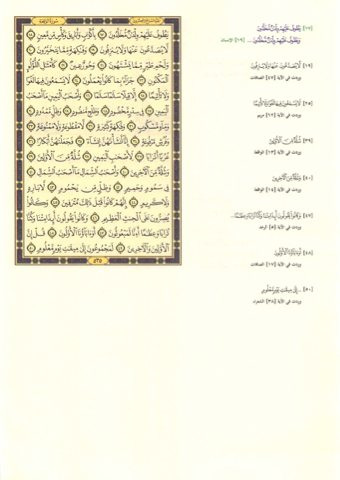 سورة الواقعة
يَطُوفُ عَلَيْهِمْ وِلْدَانٌ مُّخَلَّدُونَ ۝ بِأَكْوَابٍ وَأَبَارِيقَ وَكَأْسٍ مِّن مَّعِينٍ ۝
لَّا يُصَدَّعُونَ عَنْهَا وَلَا يُنزِفُونَ ۝ وَفَاكِهَةٍ مِّمَّا يَتَخَيَّرُونَ ۝
وَلَحْمِ طَيْرٍ مِّمَّا يَشْتَهُونَ ۝ وَحُورٌ عِينٌ ۝ كَأَمْثَالِ اللُّؤْلُؤِ
الْمَكْنُونِ ۝ جَزَاءً بِمَا كَانُوا يَعْمَلُونَ ۝ لَا يَسْمَعُونَ فِيهَا لَغْوًا
وَلَا تَأْثِيمًا ۝ إِلَّا قِيلًا سَلَامًا سَلَامًا ۝ وَأَصْحَابُ الْيَمِينِ مَا أَصْحَابُ
الْيَمِينِ ۝ فِي سِدْرٍ مَّخْضُودٍ ۝ وَطَلْحٍ مَّنضُودٍ ۝ وَظِلٍّ مَّمْدُودٍ ۝
وَمَاءٍ مَّسْكُوبٍ ۝ وَفَاكِهَةٍ كَثِيرَةٍ ۝ لَّا مَقْطُوعَةٍ وَلَا مَمْنُوعَةٍ ۝
وَفُرُشٍ مَّرْفُوعَةٍ ۝ إِنَّا أَنشَأْنَاهُنَّ إِنشَاءً ۝ فَجَعَلْنَاهُنَّ أَبْكَارًا ۝
عُرُبًا أَتْرَابًا ۝ لِّأَصْحَابِ الْيَمِينِ ۝ ثُلَّةٌ مِّنَ الْأَوَّلِينَ ۝
وَثُلَّةٌ مِّنَ الْآخِرِينَ ۝ وَأَصْحَابُ الشِّمَالِ مَا أَصْحَابُ الشِّمَالِ ۝
فِي سَمُومٍ وَحَمِيمٍ ۝ وَظِلٍّ مِّن يَحْمُومٍ ۝ لَّا بَارِدٍ
وَلَا كَرِيمٍ ۝ إِنَّهُمْ كَانُوا قَبْلَ ذَلِكَ مُتْرَفِينَ ۝ وَكَانُوا
يُصِرُّونَ عَلَى الْحِنثِ الْعَظِيمِ ۝ وَكَانُوا يَقُولُونَ أَئِذَا مِتْنَا وَكُنَّا
تُرَابًا وَعِظَامًا أَئِنَّا لَمَبْعُوثُونَ ۝ أَوَآبَاؤُنَا الْأَوَّلُونَ ۝ قُلْ إِنَّ
الْأَوَّلِينَ وَالْآخِرِينَ ۝ لَمَجْمُوعُونَ إِلَى مِيقَاتِ يَوْمٍ مَّعْلُومٍ ۝
٥٣٥
[١٧] يَطُوفُ عَلَيْهِمْ وِلْدَانٌ مُّخَلَّدُونَ
وَيَطُوفُ عَلَيْهِمْ وِلْدَانٌ مُّخَلَّدُونَ ... [١٩] الإنسان
[١٩] لَّا يُصَدَّعُونَ عَنْهَا وَلَا يُنزِفُونَ
وردت في الآية [٤٧] الصافات
[٢٥] لَا يَسْمَعُونَ فِيهَا لَغْوًا وَلَا تَأْثِيمًا
وردت في الآية [٦٢] مريم
[٣٩] ثُلَّةٌ مِّنَ الْأَوَّلِينَ
وردت في الآية [١٣] الواقعة
[٤٠] وَثُلَّةٌ مِّنَ الْآخِرِينَ
وردت في الآية [١٤] الواقعة
[٤٧] وَكَانُوا يَقُولُونَ أَئِذَا مِتْنَا وَكُنَّا تُرَابًا وَعِظَامًا...
وردت في الآية [٥] الرعد
[٤٨] أَوَآبَاؤُنَا الْأَوَّلُونَ
وردت في الآية [١٧] الصافات
[٥٠] ... إِلَى مِيقَاتِ يَوْمٍ مَّعْلُومٍ
وردت في الآية [٣٨] الشعراء